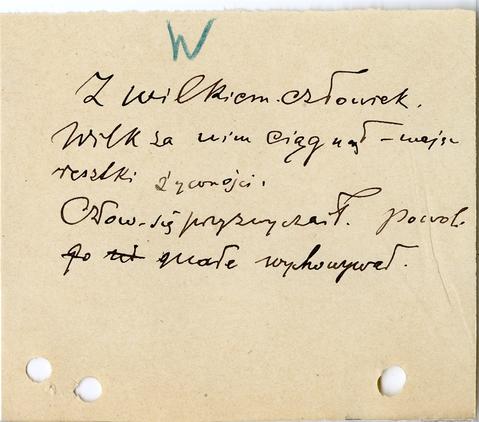 W
Z wilkiem człowiek.
Wilk za nim ciągnął –
resztki żywności.
Człow. się przyzwyczaił. powol.
go małe wychowywał.